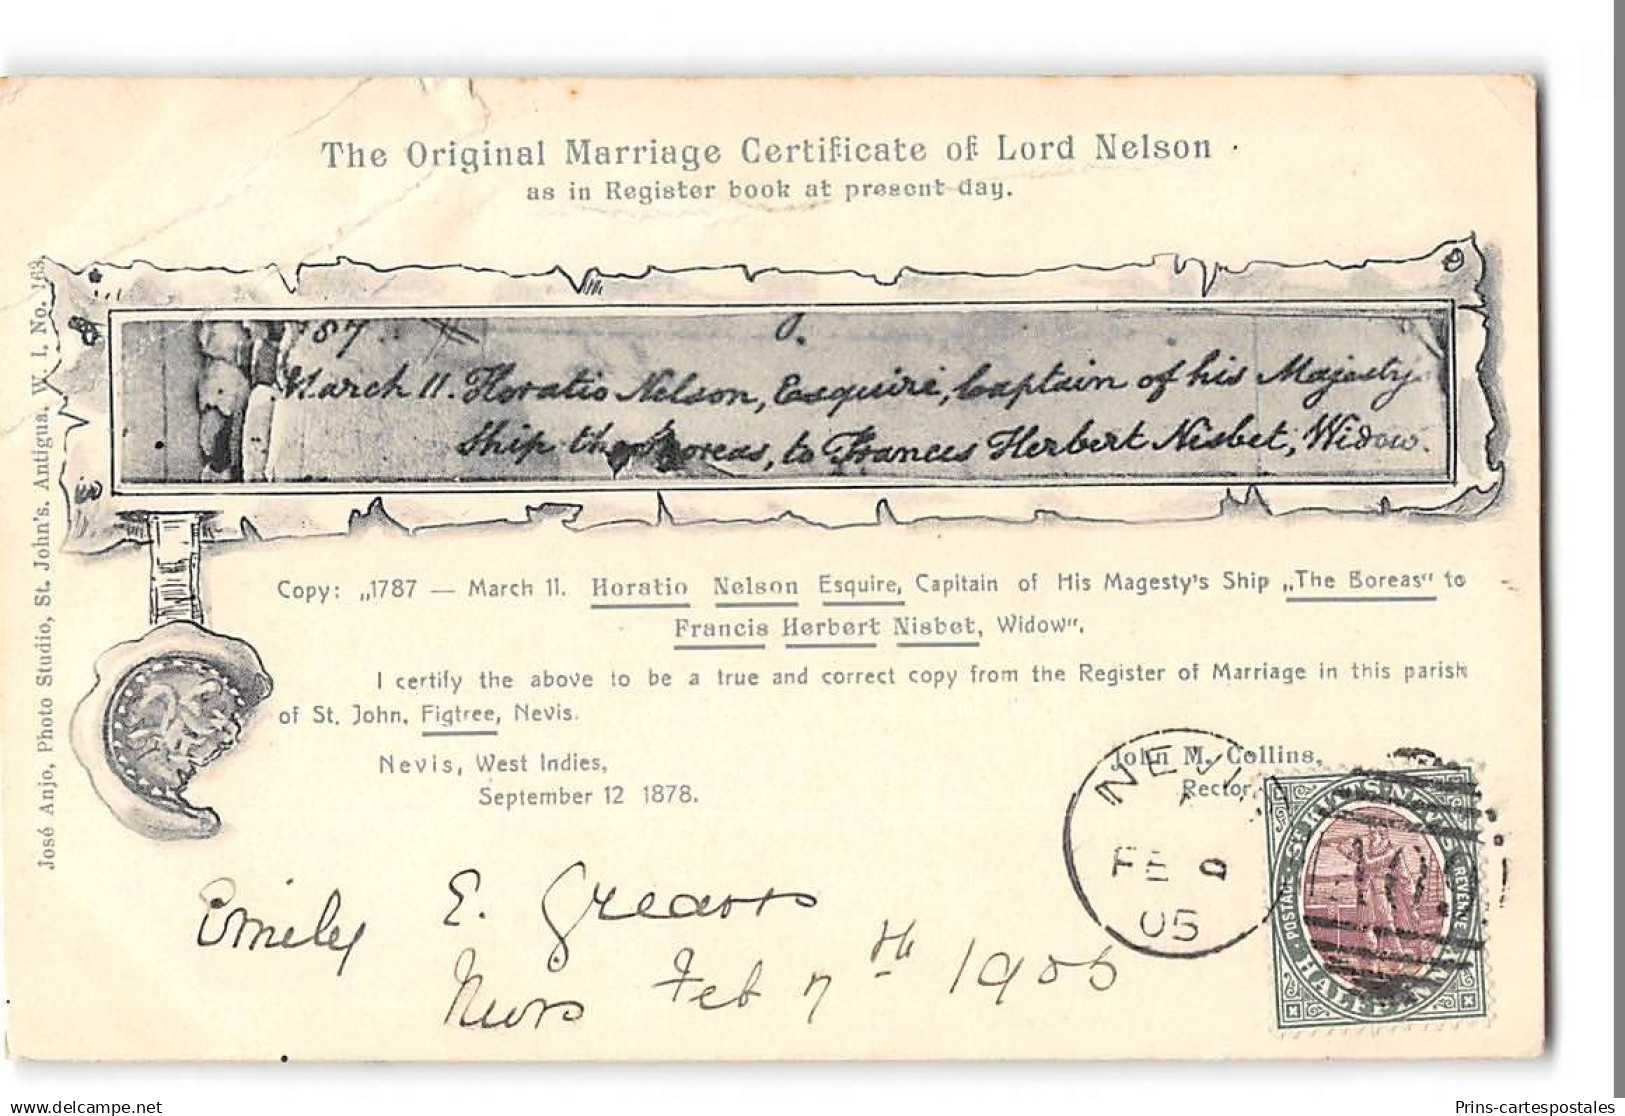 The Original Marriage Certificate of Lord Nelson
as in Register book at present day.
José Anjo, Photo Studio, St. John's. Antigua. W. I. No. 163.
87
March 11. Horatio Nelson, Esquire, Captain of his Majesty
Ship the Boreas, to Frances Herbert Nisbet, Widow.
Copy: „1787 — March 11. Horatio Nelson Esquire, Capitain of His Magesty's Ship „The Boreas“ to
Francis Herbert Nisbet, Widow“.
I certify the above to be a true and correct copy from the Register of Marriage in this parish
of St. John, Figtree, Nevis.
Nevis, West Indies,
September 12 1878.
John M. Collins,
Rector.
NEVIS
FE 9
05
ST KITTS NEVIS
POSTAGE
REVENUE
HALFPENNY
A09
Emily E. Greaves
Nevis Feb 7th 1905
delcampe.net
Prins-cartespostales